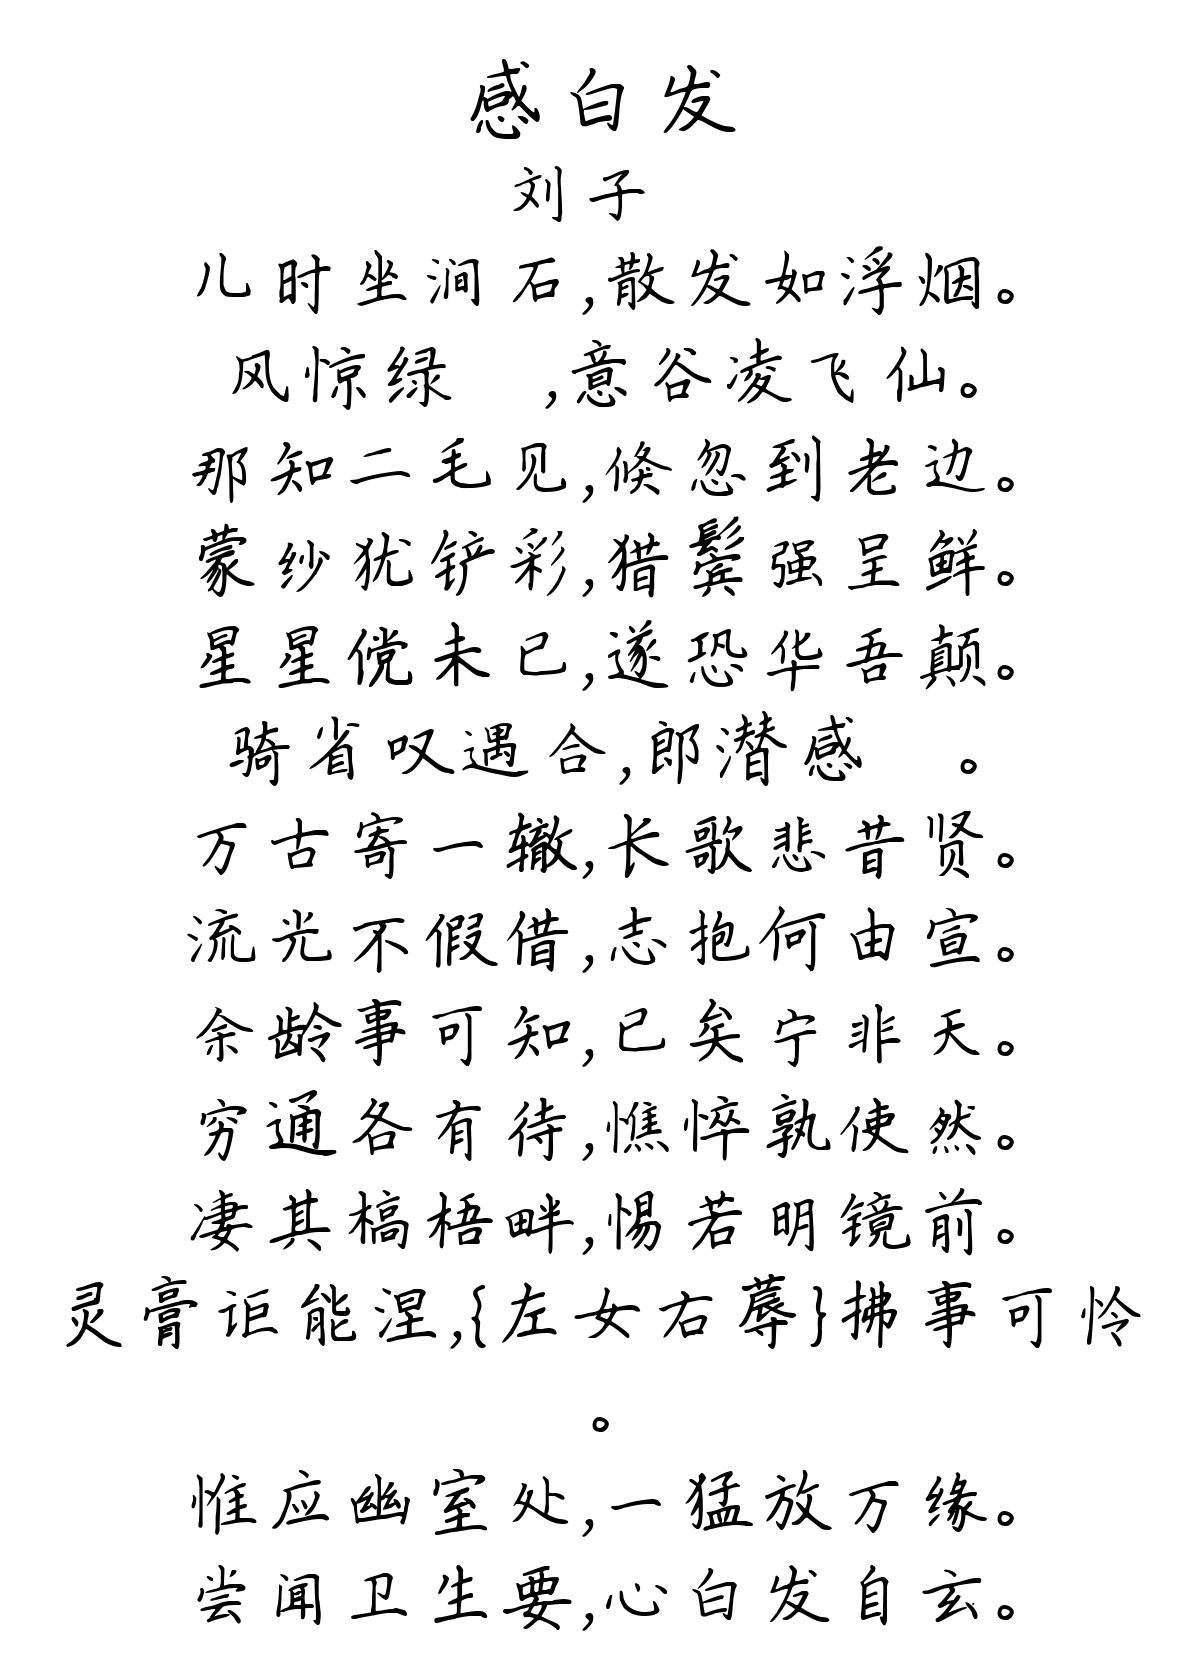 感白发
刘子
儿时坐涧石,散发如浮烟。
风惊绿　,意谷凌飞仙。
那知二毛见,倏忽到老边。
蒙纱犹铲彩,猎鬓强呈鲜。
星星傥未已,遂恐华吾颠。
骑省叹遇合,郎潜感　。
万古寄一辙,长歌悲昔贤。
流光不假借,志抱何由宣。
余龄事可知,已矣宁非天。
穷通各有待,憔悴孰使然。
凄其槁梧畔,惕若明镜前。
灵膏讵能涅,{左女右蓐}拂事可怜
。
惟应幽室处,一猛放万缘。
尝闻卫生要,心白发自玄。